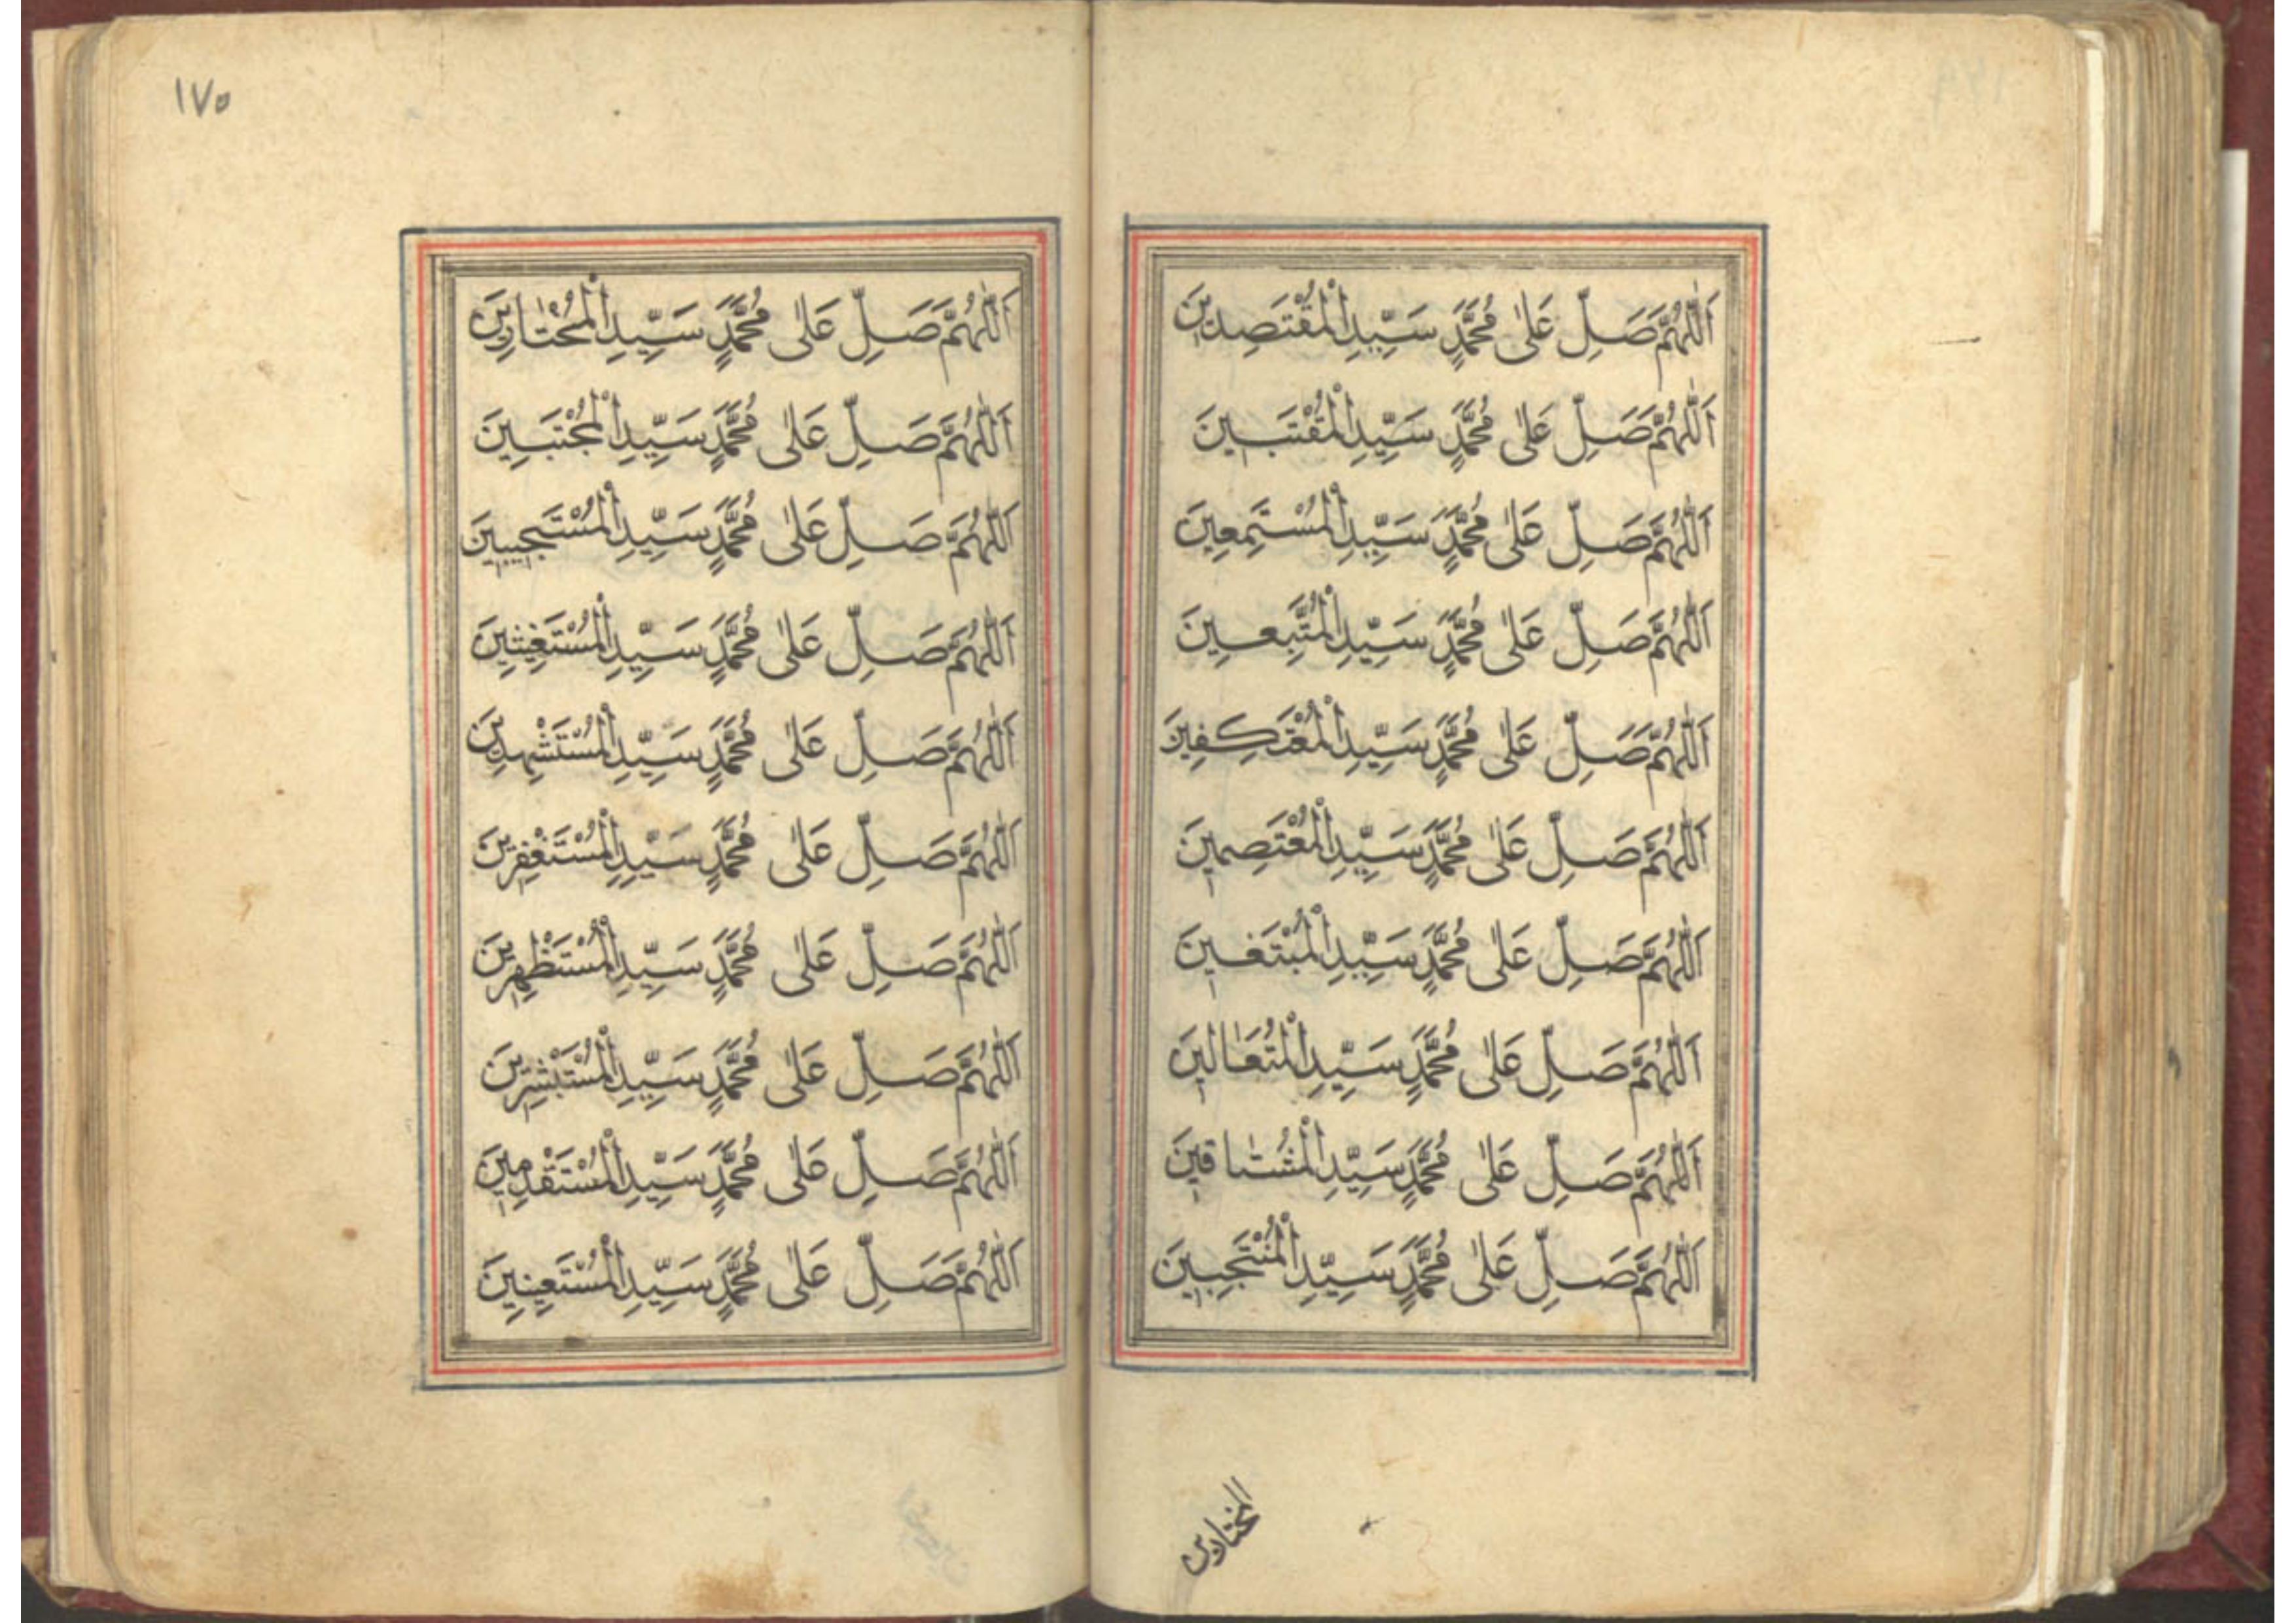 اَللّٰهُمَّ صَلِّ عَلٰى مُحَمَّدٍ سَيِّدِ الْمُقْتَصِدِينَ
اَللّٰهُمَّ صَلِّ عَلٰى مُحَمَّدٍ سَيِّدِ الْمُقْتَبَسِينَ
اَللّٰهُمَّ صَلِّ عَلٰى مُحَمَّدٍ سَيِّدِ الْمُسْتَمِعِينَ
اَللّٰهُمَّ صَلِّ عَلٰى مُحَمَّدٍ سَيِّدِ الْمُتَّبِعِينَ
اَللّٰهُمَّ صَلِّ عَلٰى مُحَمَّدٍ سَيِّدِ الْمُعْتَكِفِينَ
اَللّٰهُمَّ صَلِّ عَلٰى مُحَمَّدٍ سَيِّدِ الْمُعْتَصِمِينَ
اَللّٰهُمَّ صَلِّ عَلٰى مُحَمَّدٍ سَيِّدِ الْمُبْتَغِينَ
اَللّٰهُمَّ صَلِّ عَلٰى مُحَمَّدٍ سَيِّدِ الْمُتَعَالِينَ
اَللّٰهُمَّ صَلِّ عَلٰى مُحَمَّدٍ سَيِّدِ الْمُشْتَاقِينَ
اَللّٰهُمَّ صَلِّ عَلٰى مُحَمَّدٍ سَيِّدِ الْمُنْتَجَبِينَ
المختارين
١٧٥
اَللّٰهُمَّ صَلِّ عَلٰى مُحَمَّدٍ سَيِّدِ الْمُخْتَارِينَ
اَللّٰهُمَّ صَلِّ عَلٰى مُحَمَّدٍ سَيِّدِ الْمُجْتَبَيِنَ
اَللّٰهُمَّ صَلِّ عَلٰى مُحَمَّدٍ سَيِّدِ الْمُسْتَجِيبِينَ
اَللّٰهُمَّ صَلِّ عَلٰى مُحَمَّدٍ سَيِّدِ الْمُسْتَغِيثِينَ
اَللّٰهُمَّ صَلِّ عَلٰى مُحَمَّدٍ سَيِّدِ الْمُسْتَشْهِدِينَ
اَللّٰهُمَّ صَلِّ عَلٰى مُحَمَّدٍ سَيِّدِ الْمُسْتَغْفِرِينَ
اَللّٰهُمَّ صَلِّ عَلٰى مُحَمَّدٍ سَيِّدِ الْمُسْتَظْهِرِينَ
اَللّٰهُمَّ صَلِّ عَلٰى مُحَمَّدٍ سَيِّدِ الْمُسْتَبْشِرِينَ
اَللّٰهُمَّ صَلِّ عَلٰى مُحَمَّدٍ سَيِّدِ الْمُسْتَقْدِمِينَ
اَللّٰهُمَّ صَلِّ عَلٰى مُحَمَّدٍ سَيِّدِ الْمُسْتَعِينِينَ